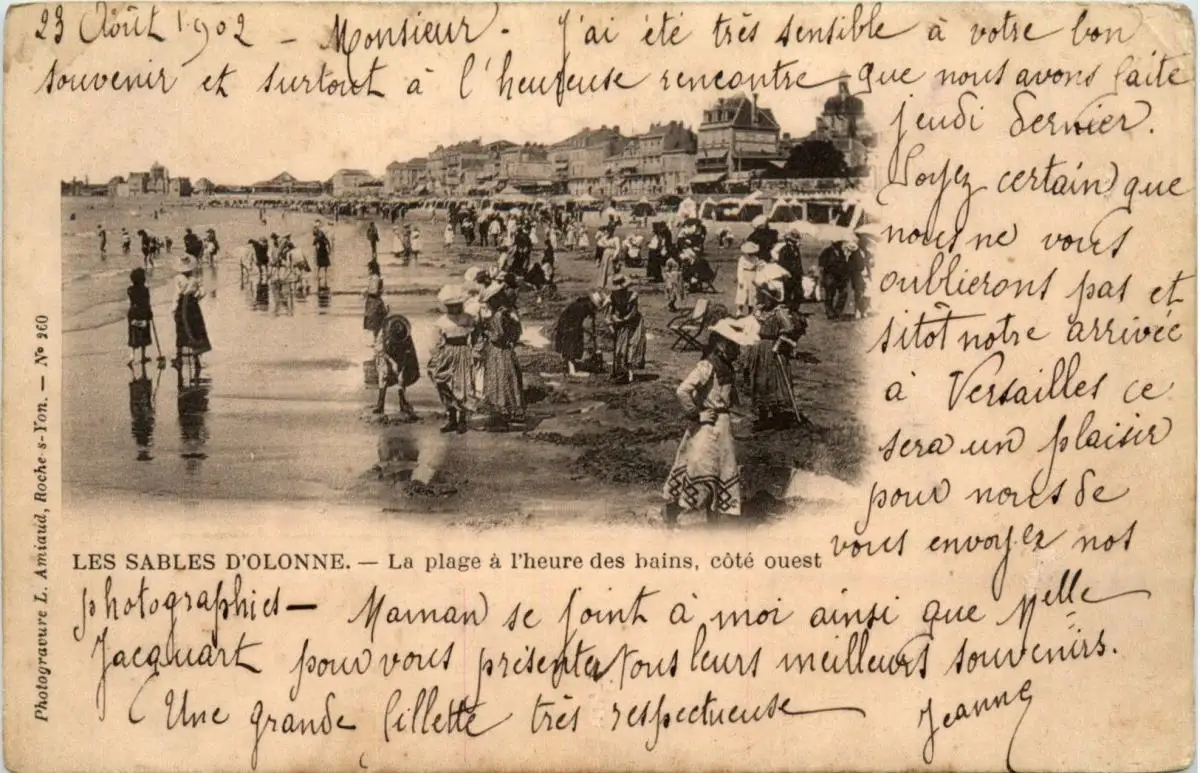 23 Août 1902 - Monsieur. J'ai été très sensible à votre bon
souvenir et surtout à l'heureuse rencontre que nous avons faite
jeudi dernier.
Soyez certain que
nous ne vous
oublierons pas et
sitôt notre arrivée
à Versailles ce
sera un plaisir
pour nous de
vous envoyez nos
photographies - Maman se joint à moi ainsi que Melle
Jacquart pour vous présenter tous leurs meilleurs souvenirs.
Une grande fillette très respectueuse
Jeanne
LES SABLES D'OLONNE. — La plage à l'heure des bains, côté ouest
Photogravure L. Amiaud, Roche-s-Yon. — N° 260